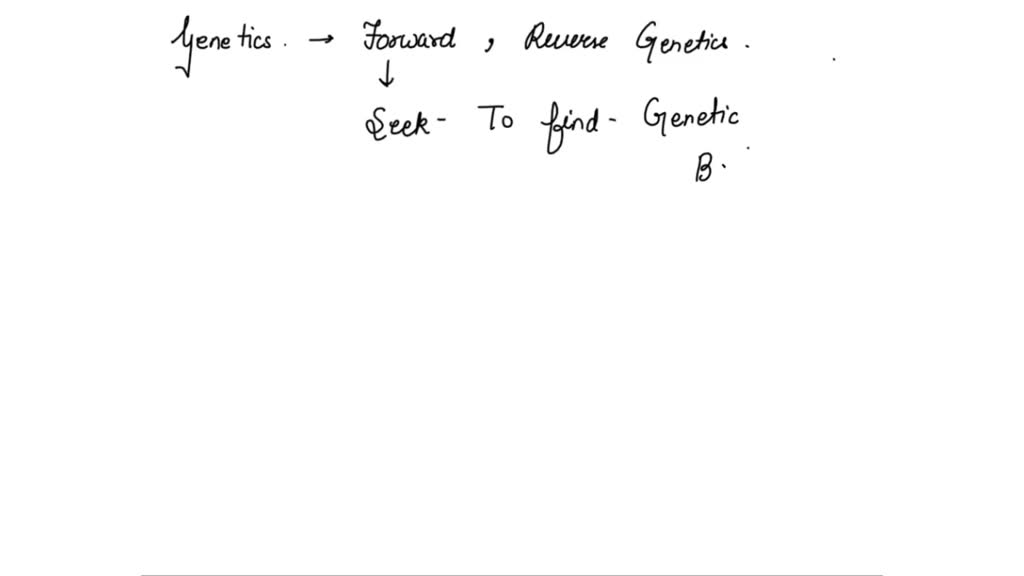 Genetics. → Forward, Reverse Genetics.
↓
Seek - To find - Genetic
B.